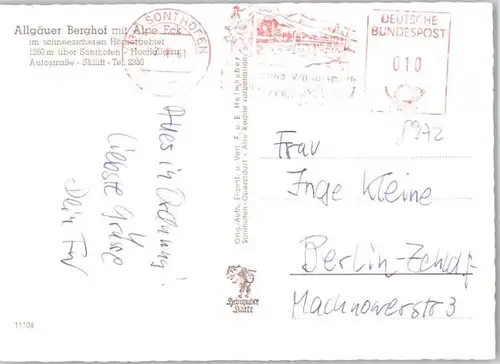 Allgäuer Berghof mit Alpe Eck
im schneesicheren Hörnergebiet
1250 m über Sonthofen - Hochallgäu
Autostraße - Skilift - Tel. 2350
SONTHOFEN
DEUTSCHE
BUNDESPOST
010
8972
Alles in Ordnung!
Liebste Grüsse
Dein
Orig.-Aufn. Eigent. u. Verl. F. u. E. Heimhuber
Sonthofen-Oberstdorf - Alle Rechte vorbehalten
Frau
Inge Kleine
Berlin-Zehldf.
Machnowerstr 3
Heimhuber
Karte
11106